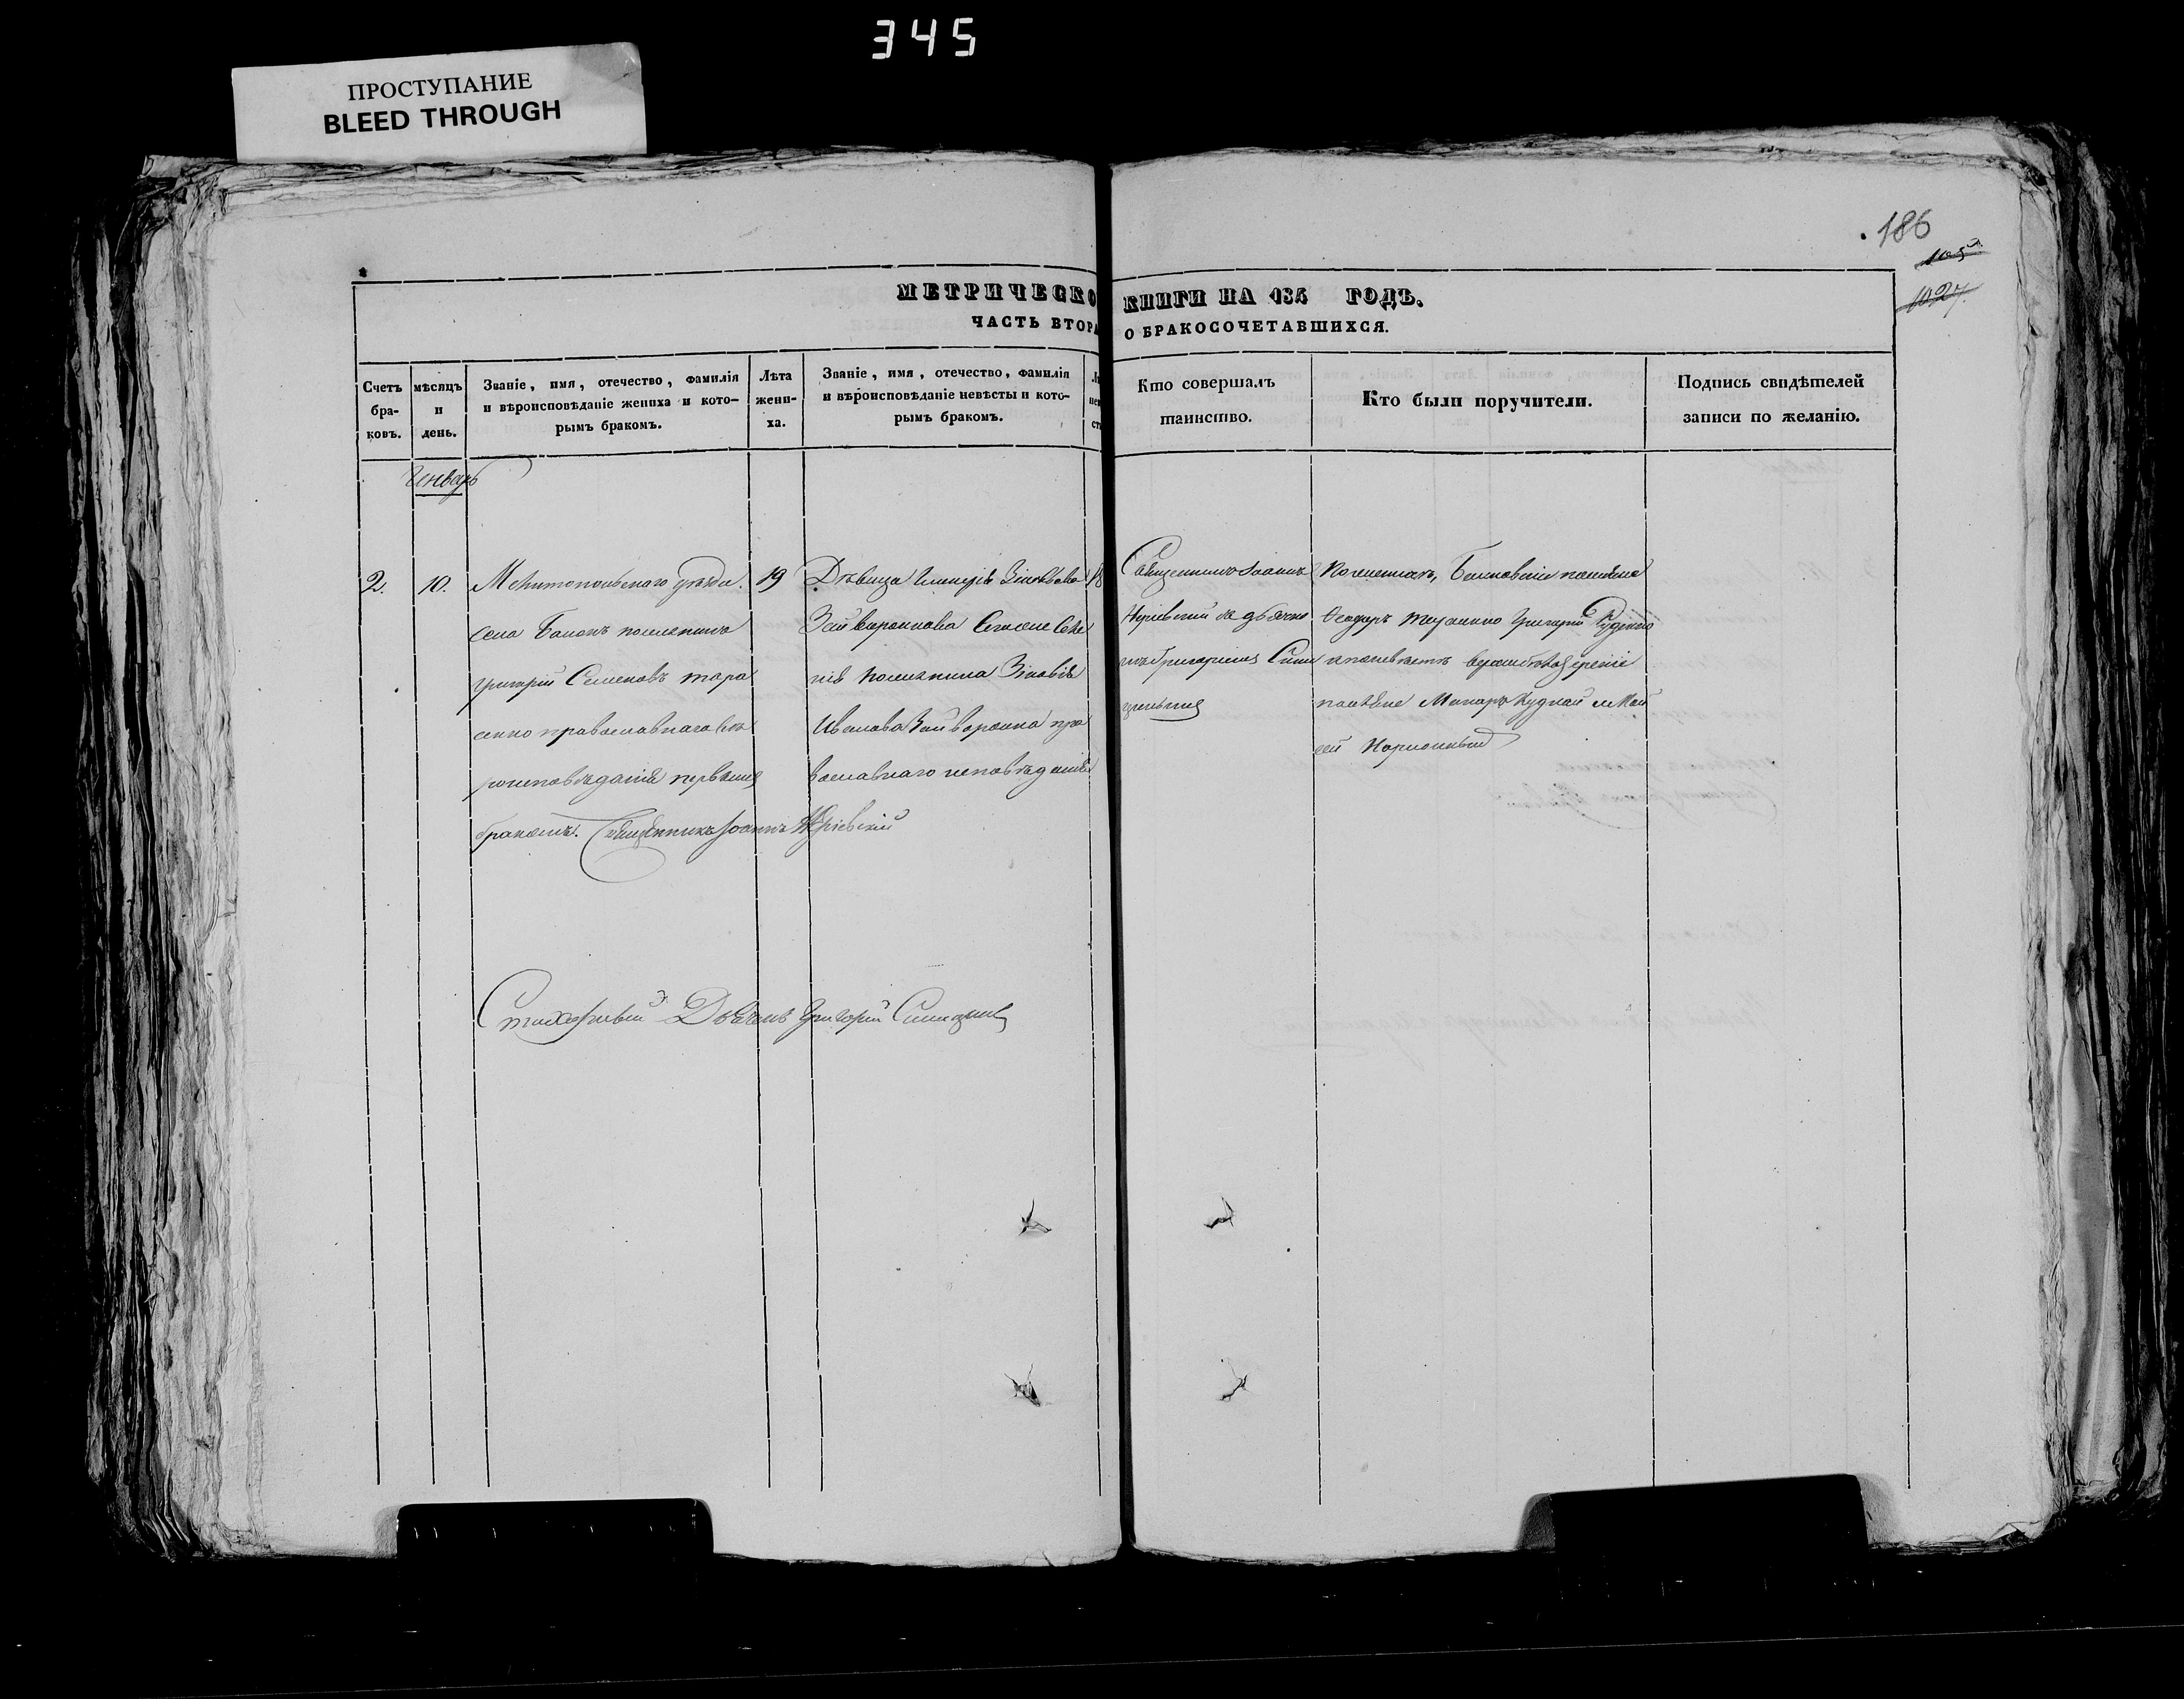 345
ПРОСТУПАНИЕ
BLEED THROUGH
186
105
1027.
МЕТРИЧЕСКО КНИГИ НА 185 ГОДЪ.
ЧАСТЬ ВТОРА О БРАКОСОЧЕТАВШИХСЯ.
Счетъ бра-ковъ.
мѣсяцъ и день.
Званіе, имя, отечество, фамилія
и вѣроисповѣданіе жениха и кото-
рымъ бракомъ.
Лѣта
жени-
ха.
Званіе, имя, отечество, фамилія
и вѣроисповѣданіе невѣсты и кото-
рымъ бракомъ.
Кто совершалъ
таинство.
Кто были поручители.
Подпись свидѣтелей
записи по желанію.
Январь
2.
10.
Мелитопольскаго уѣзда
села Балокъ поселянинъ
Григорій Семеновъ тара
сенко православнаго вѣ
роисповѣданія первымъ
бракомъ.
19
Дѣвица Зіновѣева
Зайворонкова
поселянина Зіновія
Иванова Зайворонка пра
вославнаго исповѣданія
18
Священникъ Іоаннъ
Юріевскій съ дьячко
мъ Григоріемъ Сини
цынымъ
Балковскіе поселяне
Ѳеодоръ Григорій Руденко
поселяне Макаръ
Священникъ Іоаннъ Юріевскій
Стихарный Дьячекъ Григорій Синицынъ